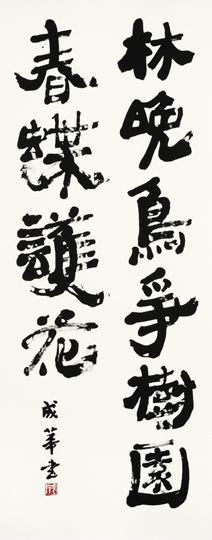 林晚鳥爭樹園
春蝶護花
成華書